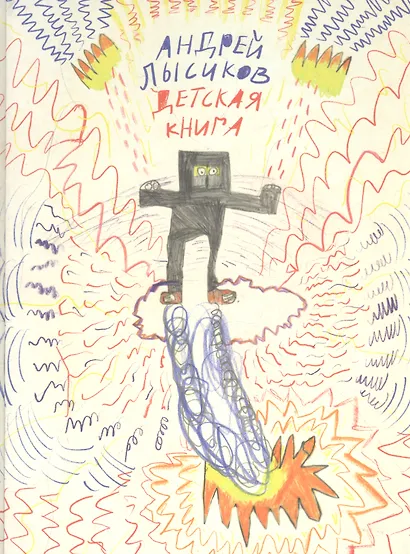 АНДРЕЙ
ЛЫСИКОВ
ДЕТСКАЯ
КНИГА